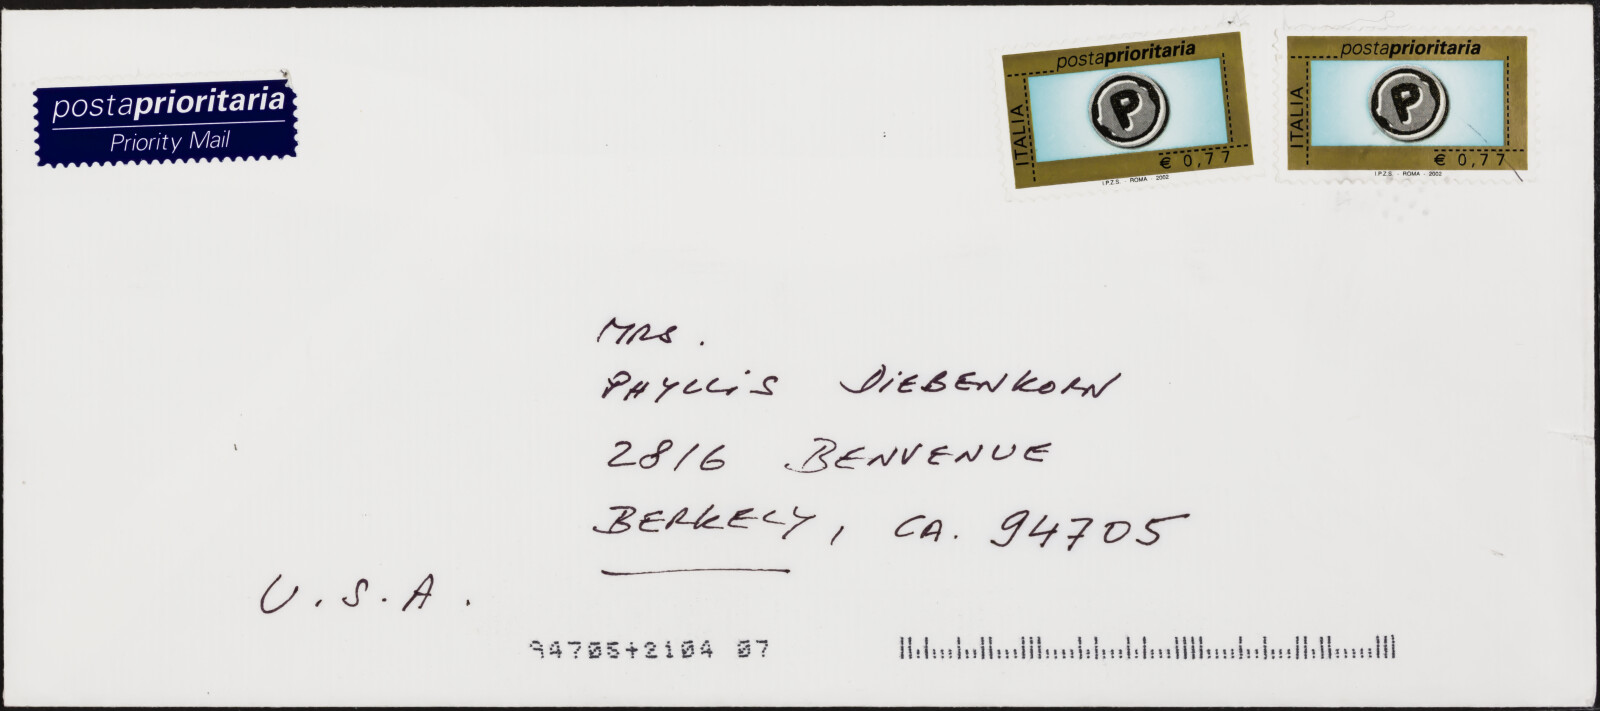 postaprioritaria
Priority Mail
postaprioritaria
P
ITALIA
€ 0,77
I.P.Z.S. - ROMA - 2002
postaprioritaria
P
ITALIA
€ 0,77
I.P.Z.S. - ROMA - 2002
MRS.
PHYLLIS DIEBENKORN
2816 BENVENUE
BERKELY, CA. 94705
U.S.A.
94705+2104 07